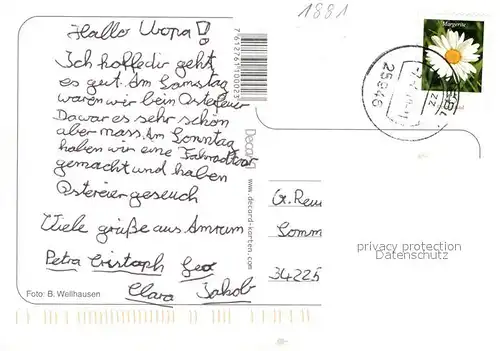 1881
Hallo Uropa!
Ich hoffe dir geht
es gut. Am Samstag
waren wir beim Osterfeuer
Da war es sehr schön
aber nass. Am Sonntag
haben wir eine Fahradtour
gemacht und haben
Ostereier gesucht
Viele grüße aus Amrum
Petra Cristoph Geo
Clara Jakob
Foto: B. Wellhausen
7612761100023
Decord
www.decord-karten.com
Margerite
25946
G. Reu
Somm
34225
privacy protection
Datenschutz